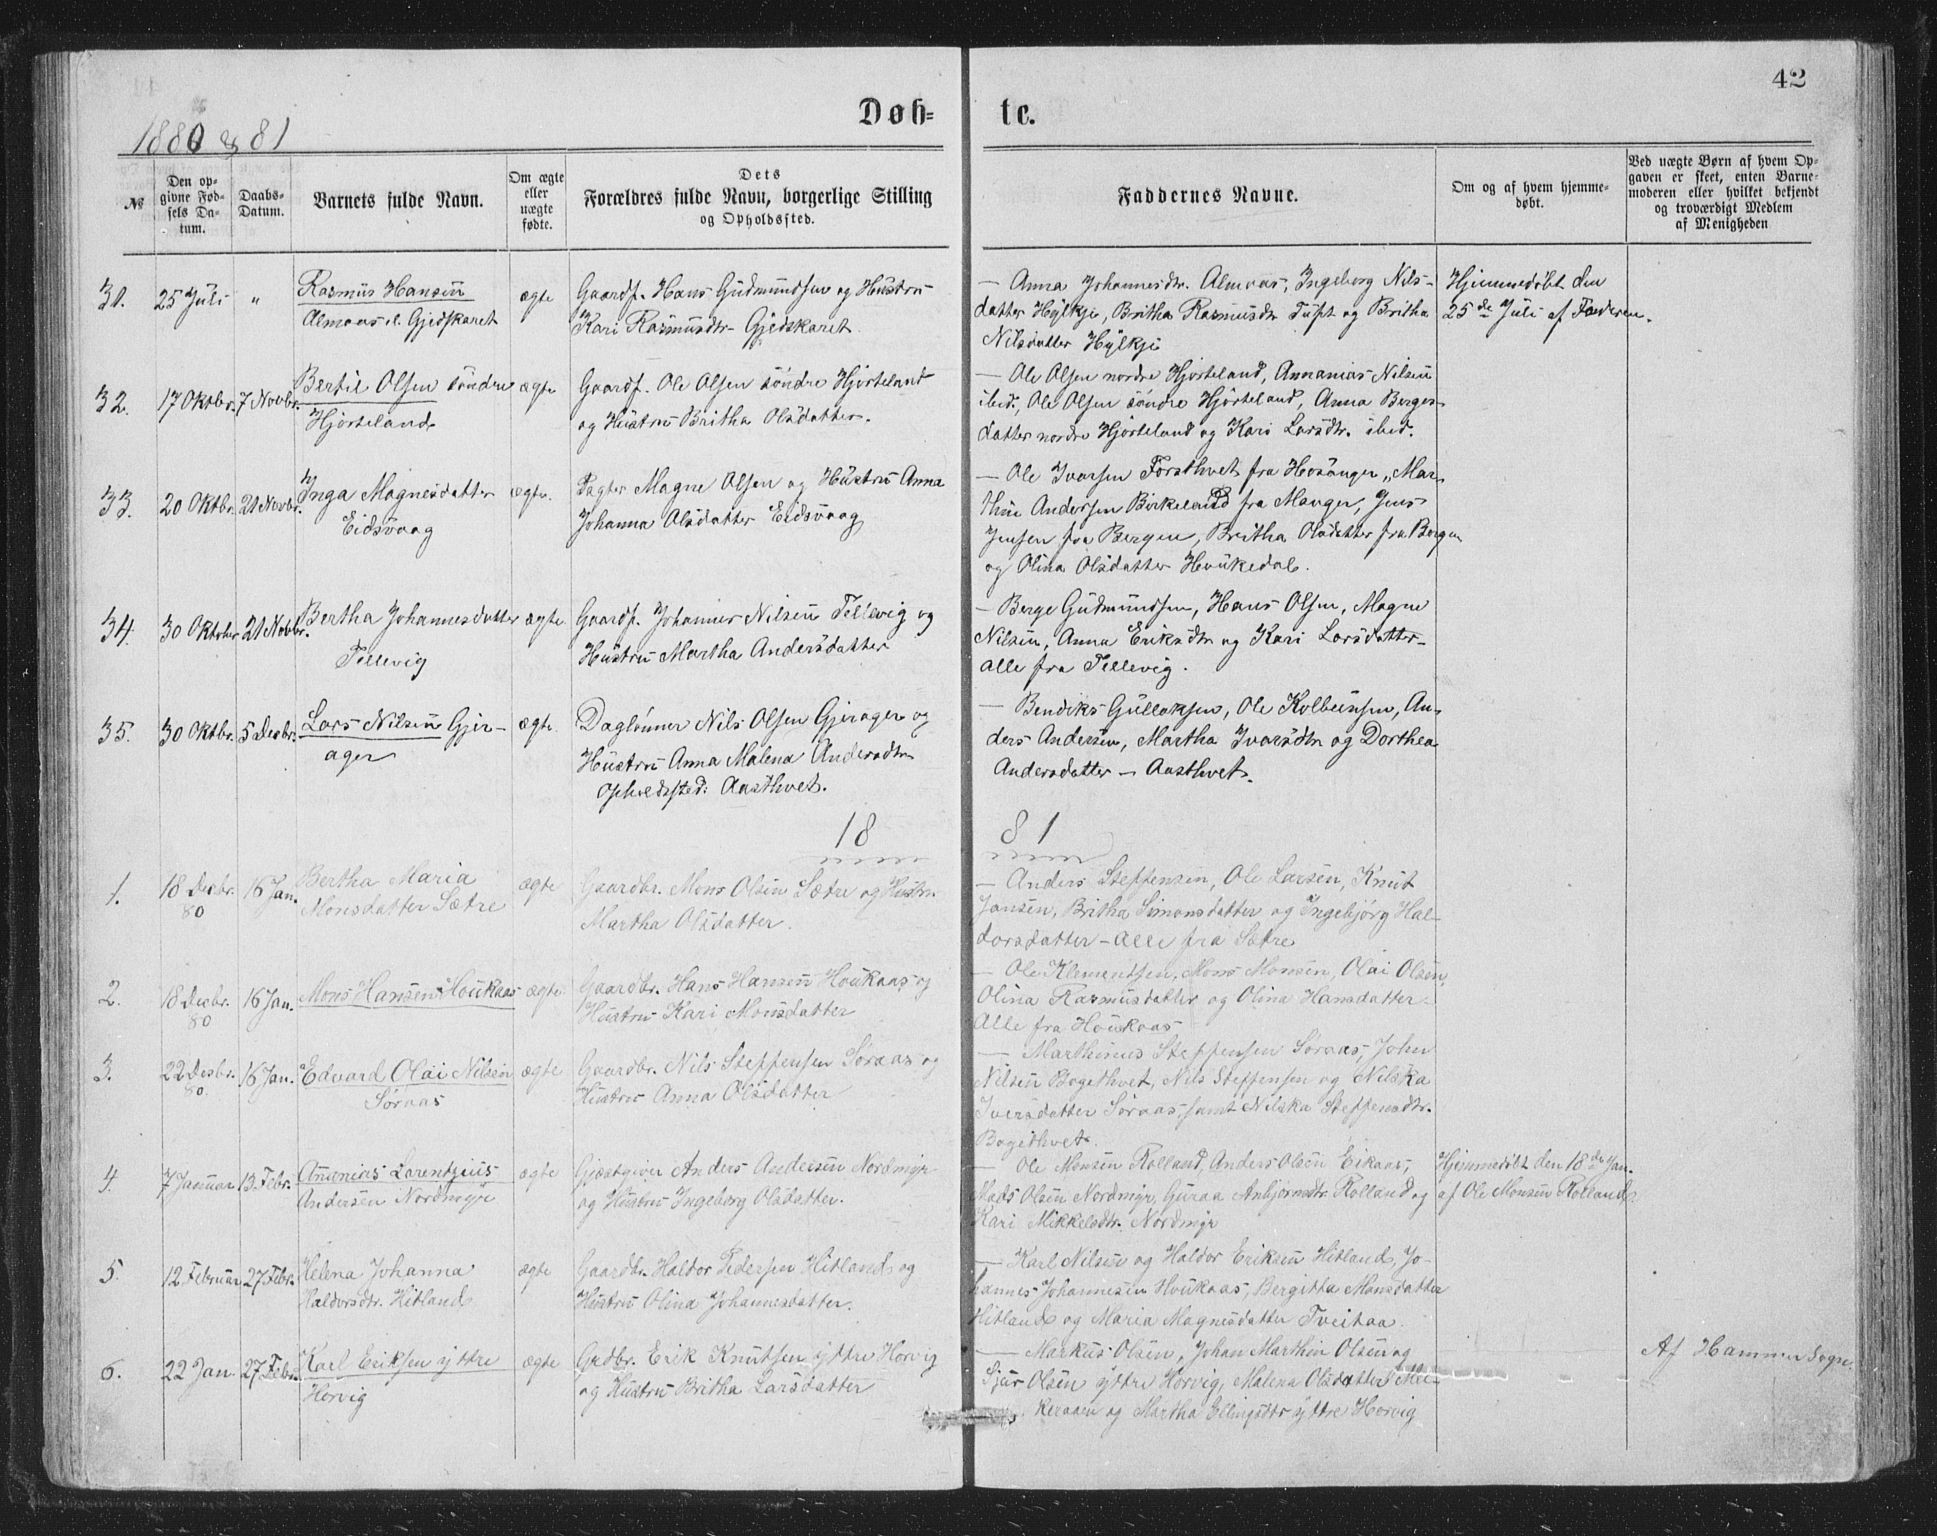 42
Døb-
te.
1880 & 81
№
Den op-
givne Fød-
sels Da-
tum.
Daabs-
Datum.
Barnets fulde Navn.
Om ægte
eller
uægte
fødte.
Dets
Forældres fulde Navn, borgerlige Stilling
og Opholdssted.
Faddernes Navne.
Om og af hvem hjemme-
døbt.
Ved uægte Børn af hvem Op-
gaven er skeet, enten Barne-
moderen eller hvilket bekjendt
og troværdigt Medlem
af Menigheden
31.
25 Juli
"
Rasmus Hansen
Almaas el. Gjedskaret
ægte
Gaardf. Hans Gudmundsen og Hustru
Kari Rasmusdtr. Gjedskaret.
— Anna Johannesdtr. Almaas, Ingeborg Nils-
datter Hylkje, Britha Rasmusdtr Tuft og Britha
Nilsdatter Hylkje
Hjemmedøbt den
25de Juli af Faderen.
32.
17 Oktbr.
7 Novbr.
Bertil Olsen søndre
Hjorteland
ægte
Gaardf. Ole Olsen søndre Hjorteland
og Hustru Britha Olsdatter.
— Ole Olsen nordre Hjorteland, Annanias Nilsen
ibid., Ole Olsen søndre Hjorteland, Anna Berges-
datter nordre Hjorteland og Kari Larsdtr. ibid.
33.
20 Oktbr.
21 Novbr.
Inga Magnesdatter
Eidsvaag
ægte.
Pagter Magne Olsen og Hustru Anna
Johanna Olsdatter Eidsvaag
— Ole Ivarsen Forsthvet fra Hosanger, Mar-
thin Andersen Birkeland fra Manger, Jens
Jensen fra Bergen, Britha Olsdatter fra Bergen
og Olina Olsdatter Houkedal.
34.
30 Oktober
21 Novbr.
Bertha Johannesdatter
Tellevig
ægte.
Gaardf. Johannes Nilsen Tellevig og
Hustru Martha Andersdatter
— Berge Gudmundsen, Hans Olsen, Magne
Nilsen, Anna Eriksdtr og Kari Larsdatter —
alle fra Tellevig.
35.
30 Oktbr.
5 Decbr.
Lars Nilsen Gjer-
ager
ægte.
Daglønner Nils Olsen Gjerager og
Hustru Anna Malena Andersdtr
Opholdssted: Aasthvet.
— Bendiks Gulleksen, Ole Kolbeinsen, An-
ders Andersen, Martha Ivarsdtr og Dorthea
Andersdatter — Aasthvet.
18
81
1.
18 Decbr.
80
16 Jan.
Bertha Maria
Monsdatter Sætre
ægte
Gaardbr. Mons Olsen Sætre og Hustru
Martha Olsdatter.
— Anders Steffensen, Ole Larsen, Knut
Jansen, Britha Simonsdatter og Ingebjørg Hal-
dorsdatter — alle fra Sætre
2.
18 Decbr.
80
16 Jan.
Mons Hansen Houkaas
ægte
Gaardbr. Hans Hansen Houkaas og
Hustru Kari Monsdatter
— Ole Klementsen, Mons Monsen, Olai Olsen,
Olina Rasmusdatter og Olina Hansdatter —
Alle fra Houkaas
3.
22 Decbr.
80.
16 Jan.
Edvard Olai Nilsen
Søraas
ægte
Gaardbr. Nils Steffensen Søraas og
Hustru Anna Olsdatter
— Marthinus Steffensen Søraas, John
Nilsen Bogethvet, Nils Steffensen og Nilska
Iversdatter Søraas, samt Nilska Steffensdtr.
Bogethvet.
4.
7 Januar
13. Febr.
Ananias Lorentzius
Andersen Nordmyr
ægte
Gjæstgiver Anders Andersen Nordmyr
og Hustru Ingeborg Olsdatter.
— Ole Monsen Rolland, Anders Olsen Eikaas,
Mads Olsen Nordmyr, Guraa Anbjørnsdtr. Rolland og
Kari Mikkelsdtr. Nordmyr
Hjemmedøbt den 18de Jan.
af Ole Monsen Rolland
5.
12 Februar
27 Febr.
Helena Johanna
Haldorsdtr. Hitland
ægte
Gaardbr. Haldor Pedersen Hitland og
Hustru Olina Johannesdatter.
— Karl Nilsen og Haldor Eriksen Hitland, Jo-
hannes Johannesen Houkaas, Bergitta Monsdatter
Hitland og Maria Magnesdatter Tveitaa.
6.
22 Jan
27 Febr.
Karl Eriksen yttre
Horvig
ægte
Grdbr. Erik Knutsen yttre Horvig
og Hustru Britha Larsdatter
— Markus Olsen, Johan Marthin Olsen og
Sjur Olsen yttre Horvig, Malena Olsdatter Mel-
keraaen og Martha Ellingsdtr yttre Horvig
Af Hammer Sogn.